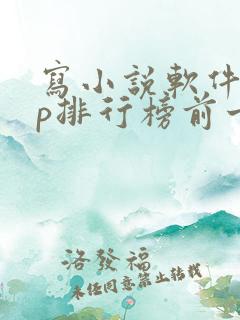 寫小說軟件
p排行榜前
洛發福
未經同意禁止轉載